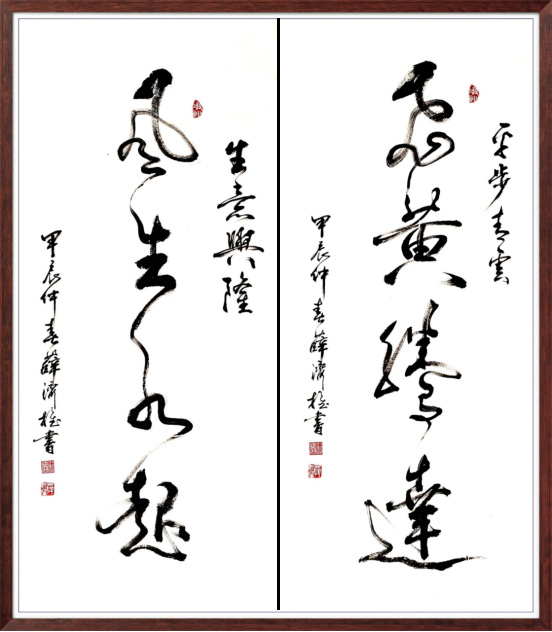 平步青雲
飛黃騰達
甲辰仲春薛濟書
生意興隆
風生水起
甲辰仲春薛濟書